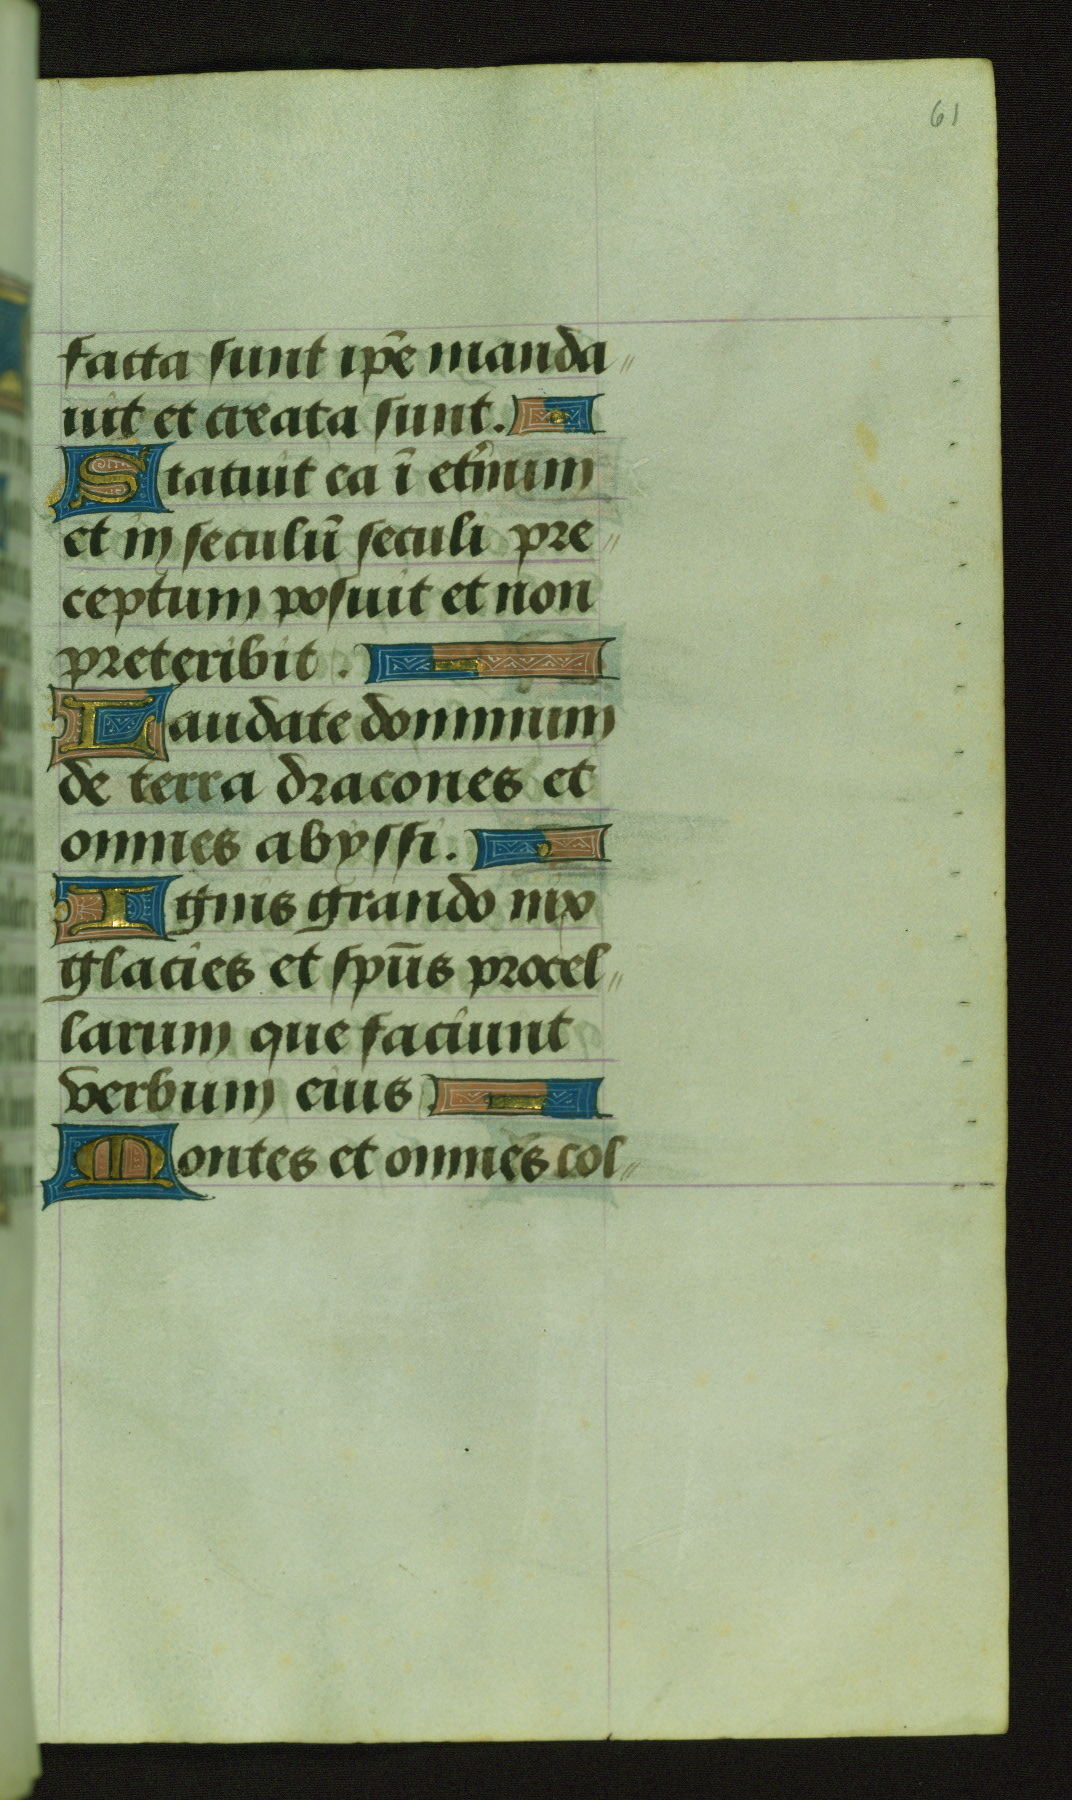 61
facta sunt ip̄e manda//
uit et creata sunt.
Statuit ea ī et̄num
et in seculū seculi pre//
ceptum posuit et non
preteribit.
Laudate dominum
de terra dracones et
omnes abyssi.
Ignis grando nix
glacies et sp̄us procel//
larum que faciunt
verbum eius
Montes et omnes col//